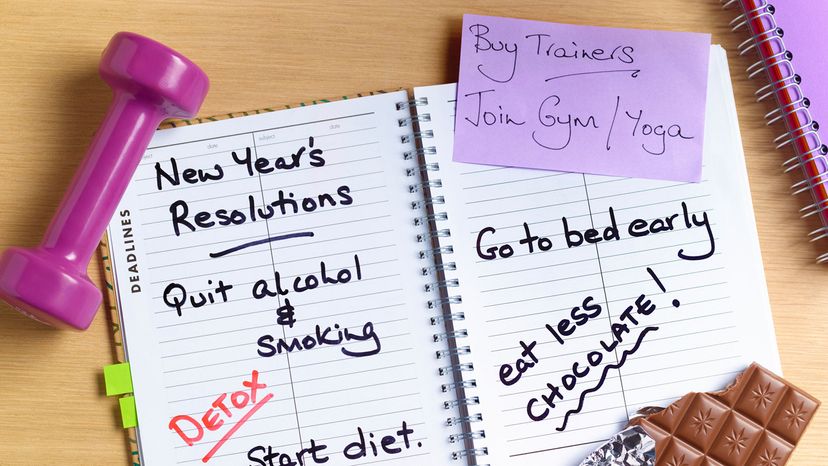 Buy Trainers
Join Gym/Yoga
subject
date
DEADLINES
New Year's
Resolutions
Quit alcohol
&
smoking
DETOX
Start diet.
Go to bed early
eat less
CHOCOLATE!